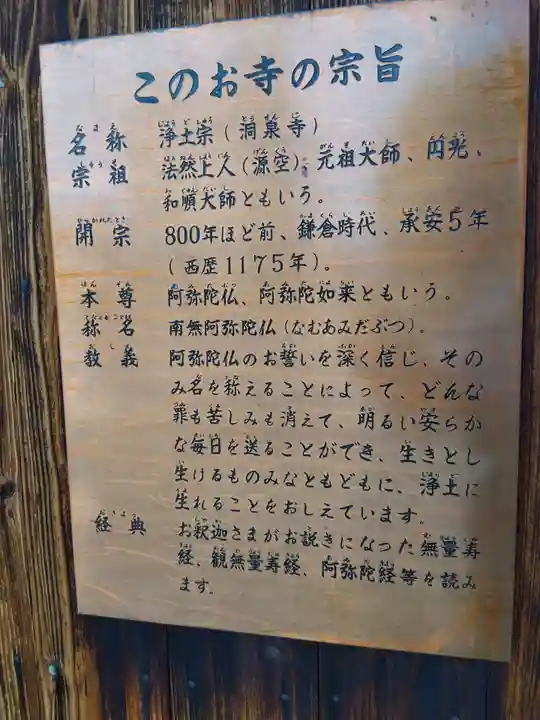 このお寺の宗旨
名称 浄土宗(洞泉寺)
宗祖 法然上人(源空)、元祖大師、円光、
和順大師ともいう。
開宗 800年ほど前、鎌倉時代、承安5年
(西歴1175年)。
本尊 阿弥陀仏、阿弥陀如来ともいう。
称名 南無阿弥陀仏(なむあみだぶつ)。
教義 阿弥陀仏のお誓いを深く信じ、その
み名を称えることによって、どんな
罪も苦しみも消えて、明るい安らか
な毎日を送ることができ、生きとし
生けるものみなともどもに、浄土に
生れることをおしえています。
経典 お釈迦さまがお説きになった無量寿
経、観無量寿経、阿弥陀経等を読み
ます。